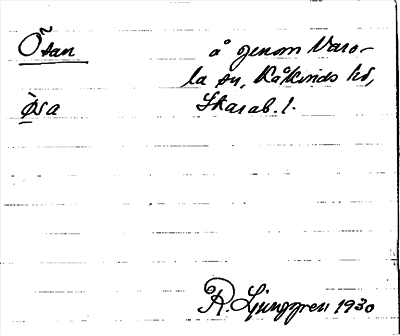 Õsan å genom Varo-
la sn, Kåkinds hd,
ò̱sa Skarab. l.
R. Ljunggren 1930